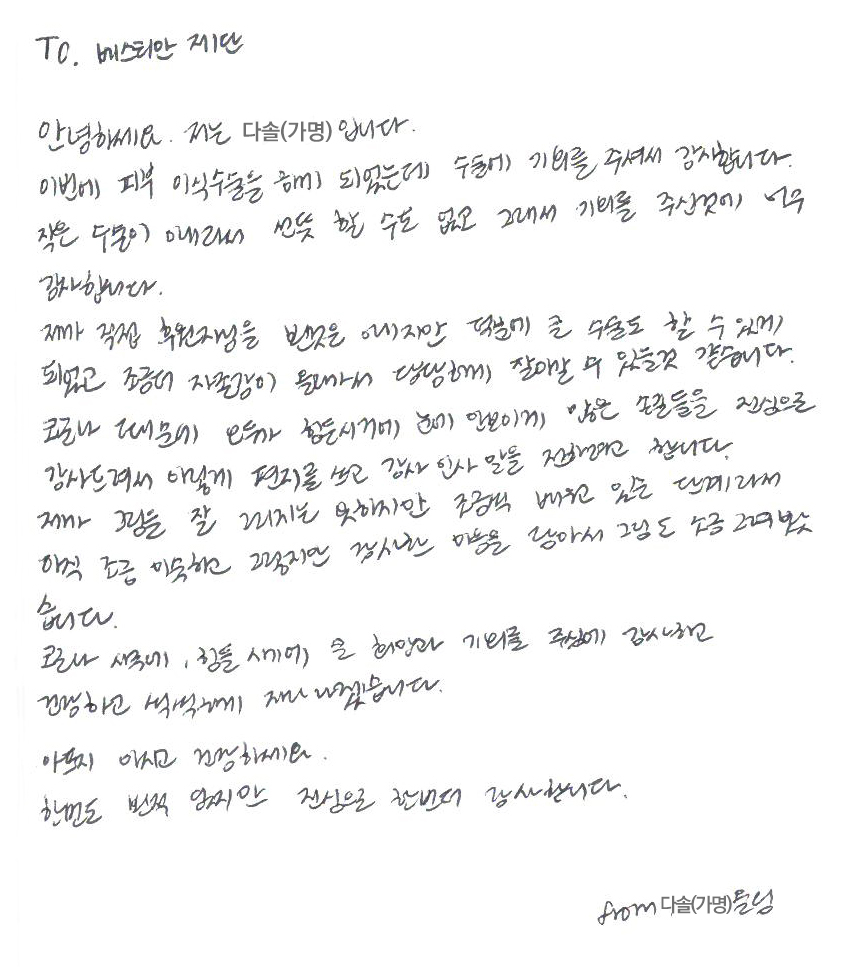 To. 베스티안 재단
안녕하세요. 저는 다솔(가명)입니다.
이번에 피부 이식수술을 하게 되었는데 수술에 기회를 주셔서 감사합니다.
작은 수술이 아니라서 선뜻 할 수도 없고 그래서 기회를 주신것에 너무
감사합니다.
제가 직접 후원자님을 본것은 아니지만 덕분에 큰 수술도 할 수 있게
되었고 조금더 자존감이 올라가서 당당하게 살아갈 수 있을것 같습니다.
코로나 때문에 모두가 힘든시기에 눈에 안보이게 많은 손길들을 진심으로
감사드려서 이렇게 편지를 쓰고 감사 인사 말을 전하려고 합니다.
제가 그림을 잘 그리지는 못하지만 조금씩 배우고 있는 단계라서
아직 조금 미숙하고 그렇지만 감사한 마음을 담아서 그림도 조금 그려보았
습니다.
코로나 시국에, 힘들 시기에 큰 희망과 기회를 주심에 감사하고
건강하고 씩씩하게 지내겠습니다.
아프지 마시고 건강하세요.
한번도 본적 없지만 진심으로 한번더 감사합니다.
from 다솔(가명)올림